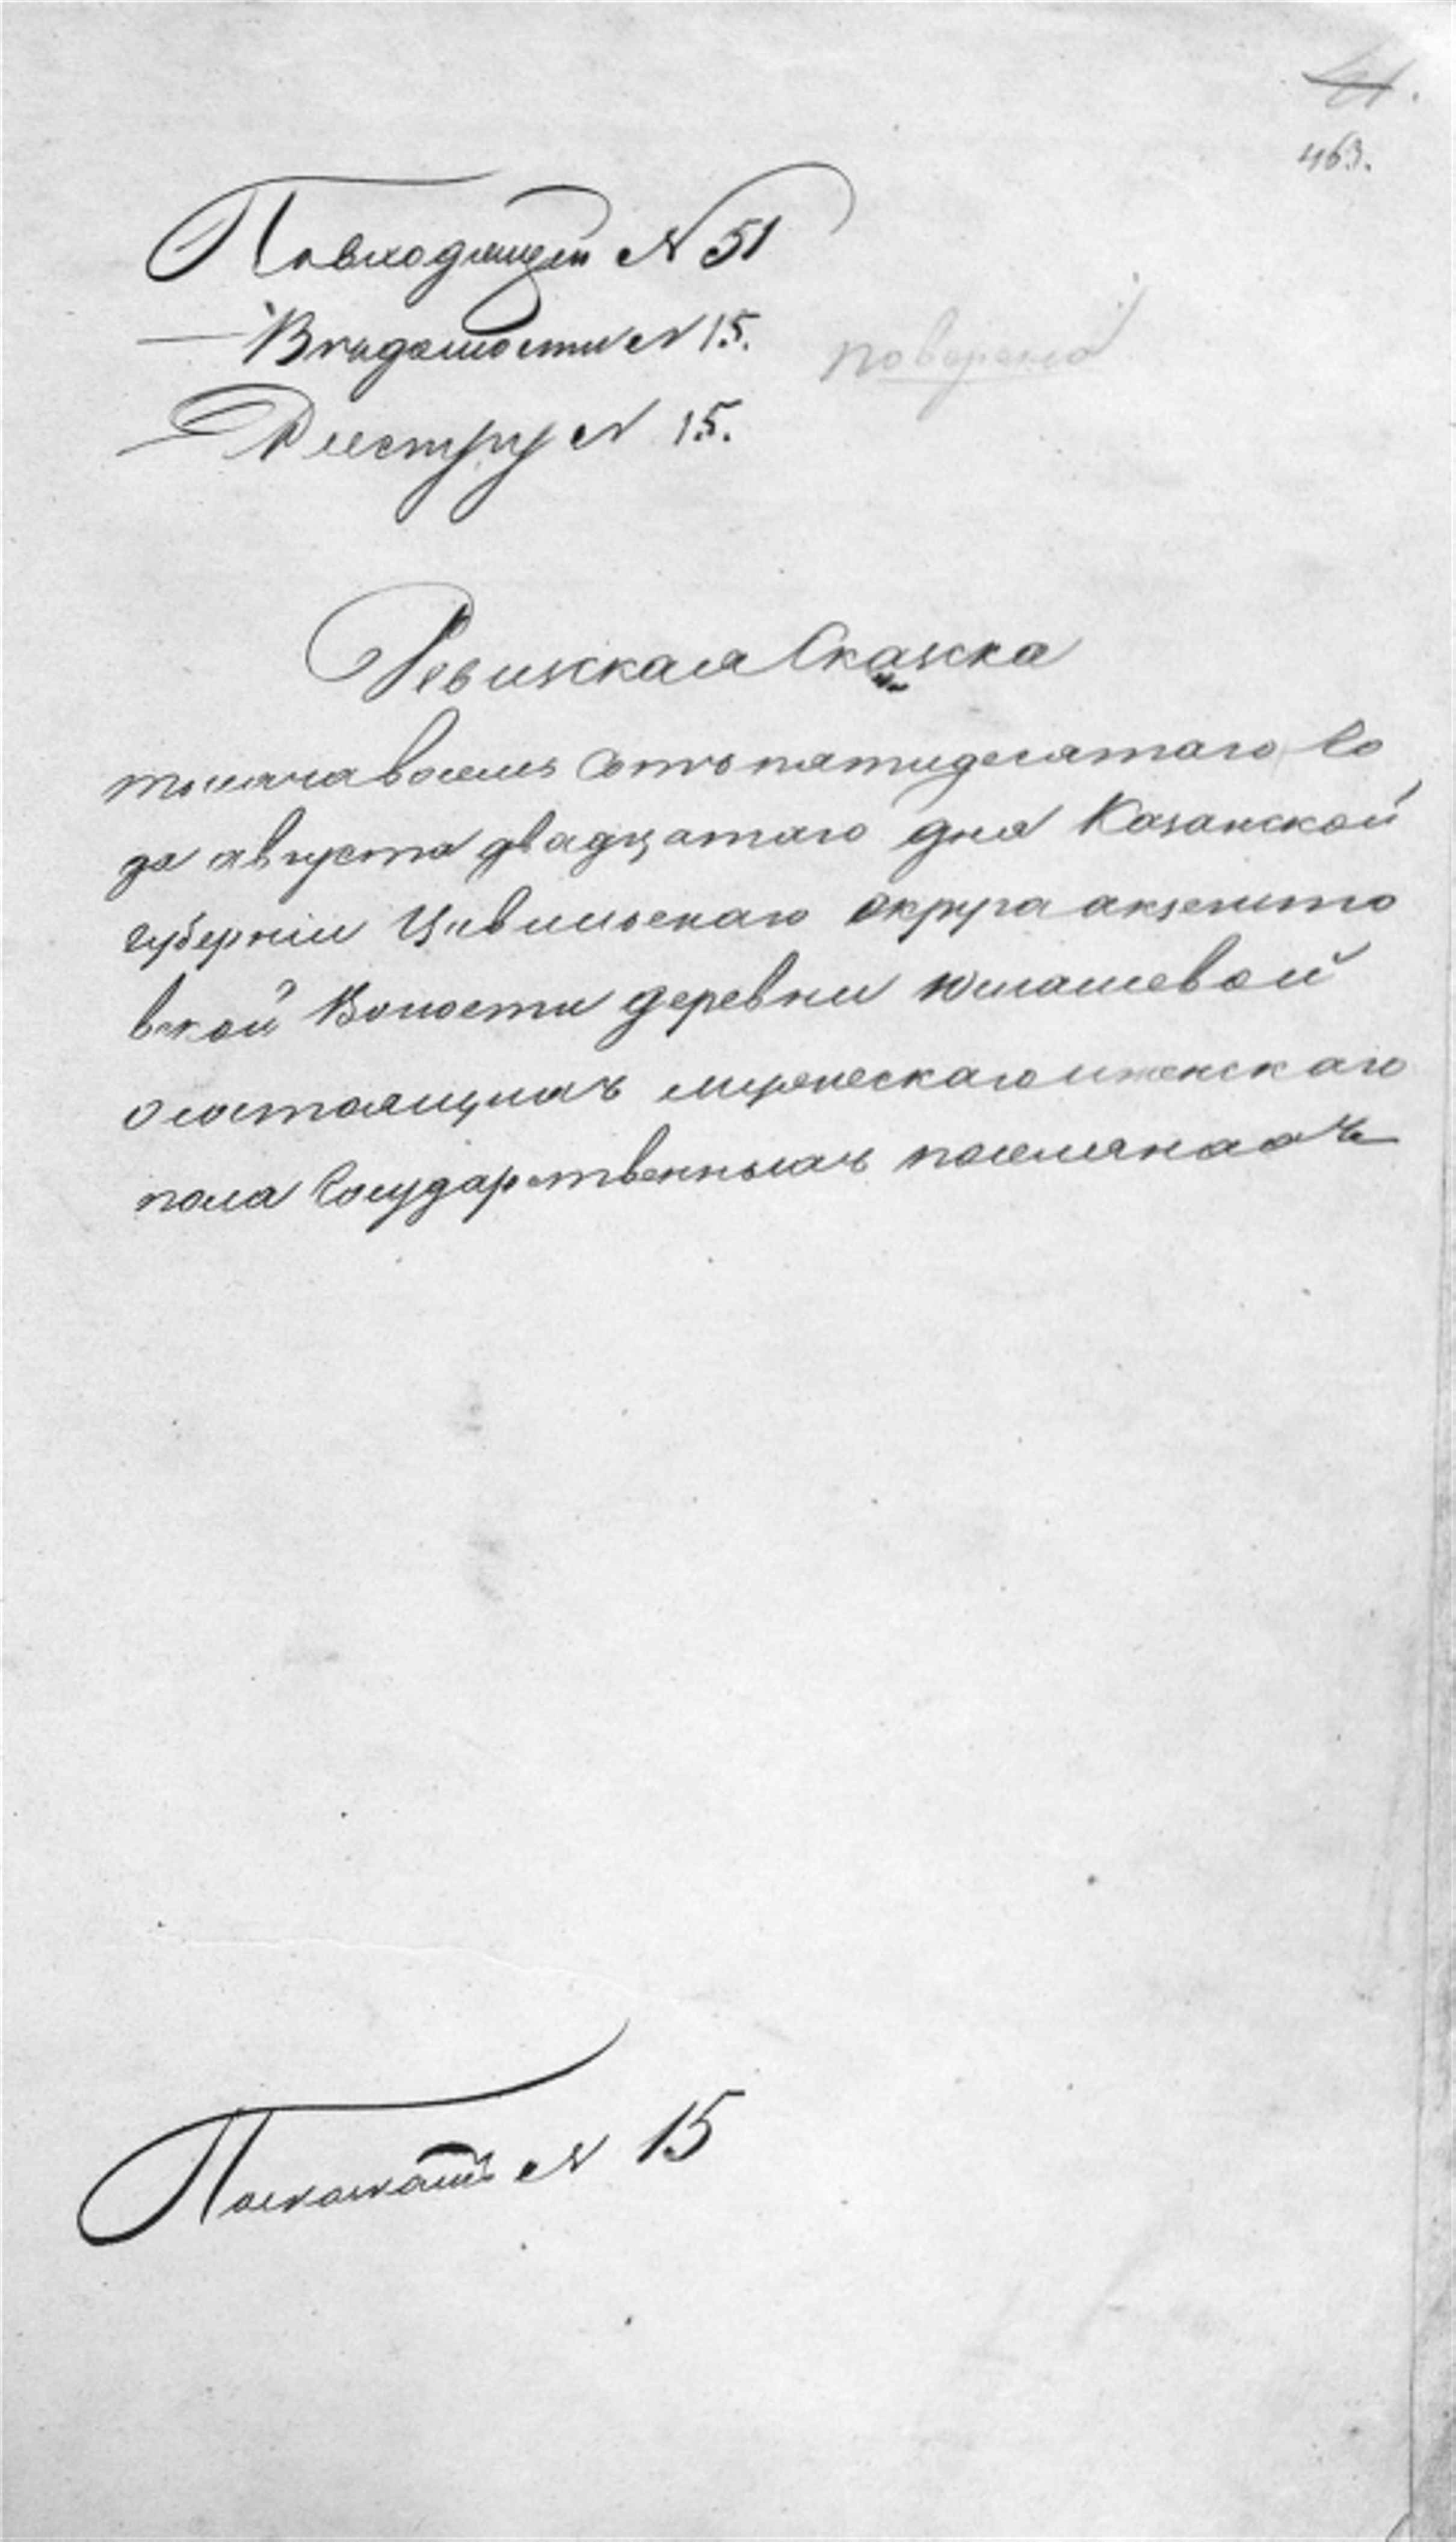 41.
463.
Повходящей N 51
— Ведомости N 15.
поверена
— Реестру N 15.
Ревижская Сказка
тысяча восемь сотъ пятидесятаго го
да августа двадцатаго дня Казанской
губерніи Цивильскаго округа акзегито
вской Волости деревни юмашевой
осостоящихъ мужескаго иженскаго
пола Государственныхъ поселянахъ
N 15